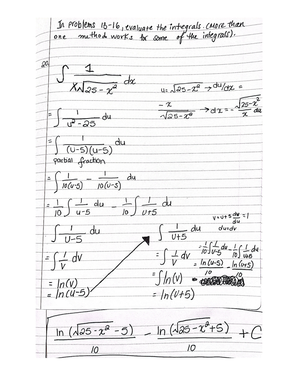 In problems 15-16, evaluate the integrals. (More than
one method works for some of the integrals).
20.
∫ 1/(x√25-x²) dx
u= √25-x² → du/dx =
-x/√25-x² → dx = -√25-x²/x du
= ∫ 1/(u²-25) du
= ∫ 1/((u-5)(u-5)) du
partial fraction
= ∫ 1/(10(u-5)) - 1/(10(u-5)) du
= 1/10 ∫ 1/(u-5) du - 1/10 ∫ 1/(u+5) du
∫ 1/(u-5) du
∫ 1/(u+5) du
v=u+5 dv/du =1
du=dv
= ∫ 1/v dv
= ∫ 1/v dv
= 1/10 ∫ 1/(u-5) du - 1/10 ∫ 1/(u+5) du
= ln(u-5)/10 - ln(u+5)/10
= ln(v)
= ∫ ln(v)
= ln(u-5)
= ln(v+5)
ln(√25-x² -5)/10 - ln(√25-x² +5)/10 + C